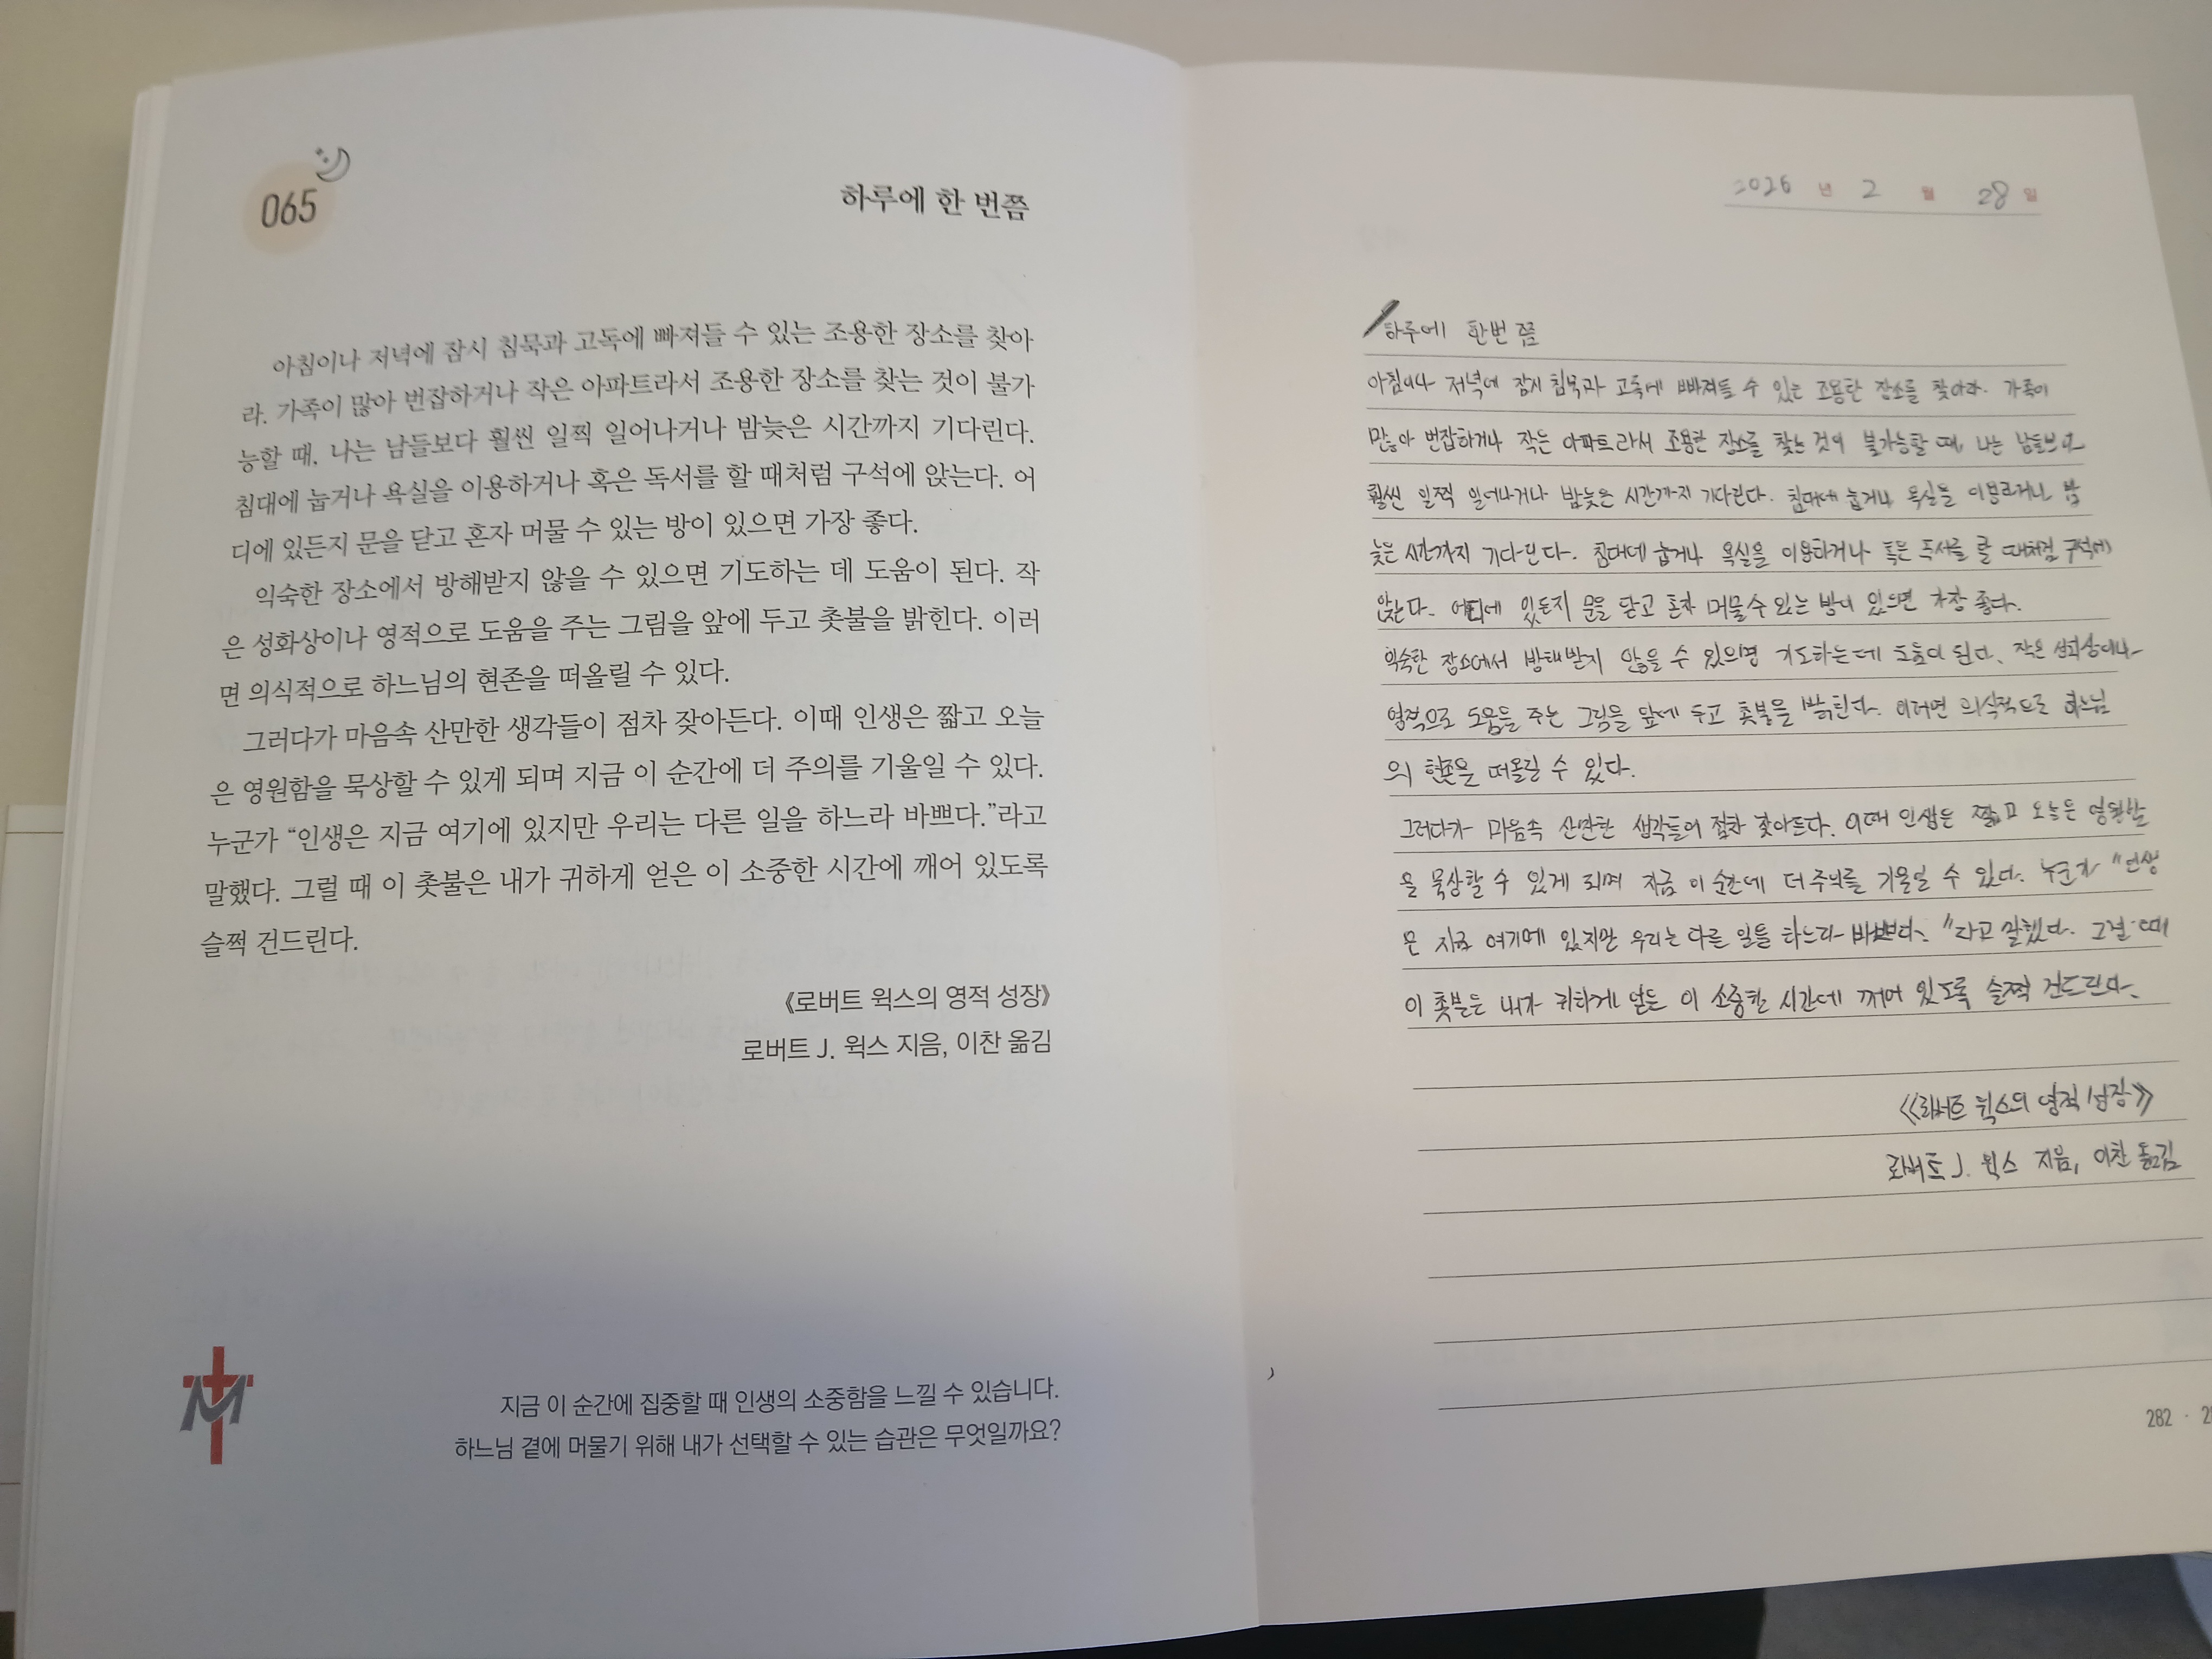 065
하루에 한 번쯤
아침이나 저녁에 잠시 침묵과 고독에 빠져들 수 있는 조용한 장소를 찾아
라. 가족이 많아 번잡하거나 작은 아파트라서 조용한 장소를 찾는 것이 불가
능할 때, 나는 남들보다 훨씬 일찍 일어나거나 밤늦은 시간까지 기다린다.
침대에 눕거나 욕실을 이용하거나 혹은 독서를 할 때처럼 구석에 앉는다. 어
디에 있든지 문을 닫고 혼자 머물 수 있는 방이 있으면 가장 좋다.
익숙한 장소에서 방해받지 않을 수 있으면 기도하는 데 도움이 된다. 작
은 성화상이나 영적으로 도움을 주는 그림을 앞에 두고 촛불을 밝힌다. 이러
면 의식적으로 하느님의 현존을 떠올릴 수 있다.
그러다가 마음속 산만한 생각들이 점차 잦아든다. 이때 인생은 짧고 오늘
은 영원함을 묵상할 수 있게 되며 지금 이 순간에 더 주의를 기울일 수 있다.
누군가 “인생은 지금 여기에 있지만 우리는 다른 일을 하느라 바쁘다.”라고
말했다. 그럴 때 이 촛불은 내가 귀하게 얻은 이 소중한 시간에 깨어 있도록
슬쩍 건드린다.
《로버트 윅스의 영적 성장》
로버트 J. 윅스 지음, 이찬 옮김
지금 이 순간에 집중할 때 인생의 소중함을 느낄 수 있습니다.
하느님 곁에 머물기 위해 내가 선택할 수 있는 습관은 무엇일까요?
2026 년 2 월 28 일
하루에 한번 쯤
아침이나 저녁에 잠시 침묵과 고독에 빠져들 수 있는 조용한 장소를 찾아라. 가족이
많아 번잡하거나 작은 아파트라서 조용한 장소를 찾는 것이 불가능할 때, 나는 남들보다
훨씬 일찍 일어나거나 밤늦은 시간까지 기다린다. 침대에 눕거나 욕실을 이용하거나 밤
늦은 시간까지 기다린다. 침대에 눕거나 욕실을 이용하거나 혹은 독서를 할 때처럼 구석에
앉는다. 어디에 있든지 문을 닫고 혼자 머물 수 있는 방이 있으면 가장 좋다.
익숙한 장소에서 방해받지 않을 수 있으면 기도하는데 도움이 된다. 작은 성화상이나
영적으로 도움을 주는 그림을 앞에 두고 촛불을 밝힌다. 이러면 의식적으로 하느님
의 현존을 떠올릴 수 있다.
그러다가 마음속 산만한 생각들이 점차 잦아든다. 이때 인생은 짧고 오늘은 영원함
을 묵상할 수 있게 되며 지금 이 순간에 더 주의를 기울일 수 있다. 누군가 "인생
은 지금 여기에 있지만 우리는 다른 일을 하느라 바쁘다."라고 말했다. 그럴 때
이 촛불은 내가 귀하게 얻은 이 소중한 시간에 깨어 있도록 슬쩍 건드린다.
《로버트 윅스의 영적 성장》
로버트 J. 윅스 지음, 이찬 옮김
282